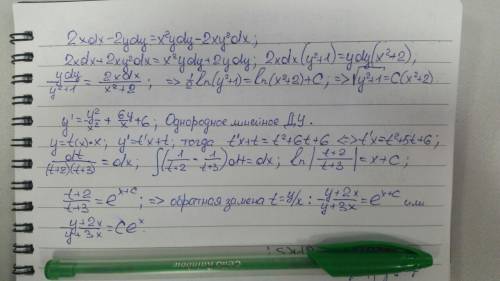 2xdx-2ydy=x²ydy-2xy²dx;
2xdx+2xy²dx=x²ydy+2ydy; 2xdx(y²+1)=ydy(x²+2),
ydy/(y²+1) = 2xdx/(x²+2); => ½ln(y²+1)=ln(x²+2)+C, => √(y²+1)=C(x²+2)
y' = y²/x² + 6y/x + 6; Однородное линейное Д.У.
y=t(x)·x; y'=t'x+t; тогда t'x+t=t²+6t+6 <=> t'x=t²+5t+6;
dt/((t+2)(t+3)) = dx; ∫(1/(t+2) - 1/(t+3))dt=dx; ln|(t+2)/(t+3)|=x+C;
(t+2)/(t+3) = e^(x+c); => обратная замена t=y/x: (y+2x)/(y+3x)=e^(x+c) или
(y+2x)/(y+3x)=Ce^x.
Cello Rainbow